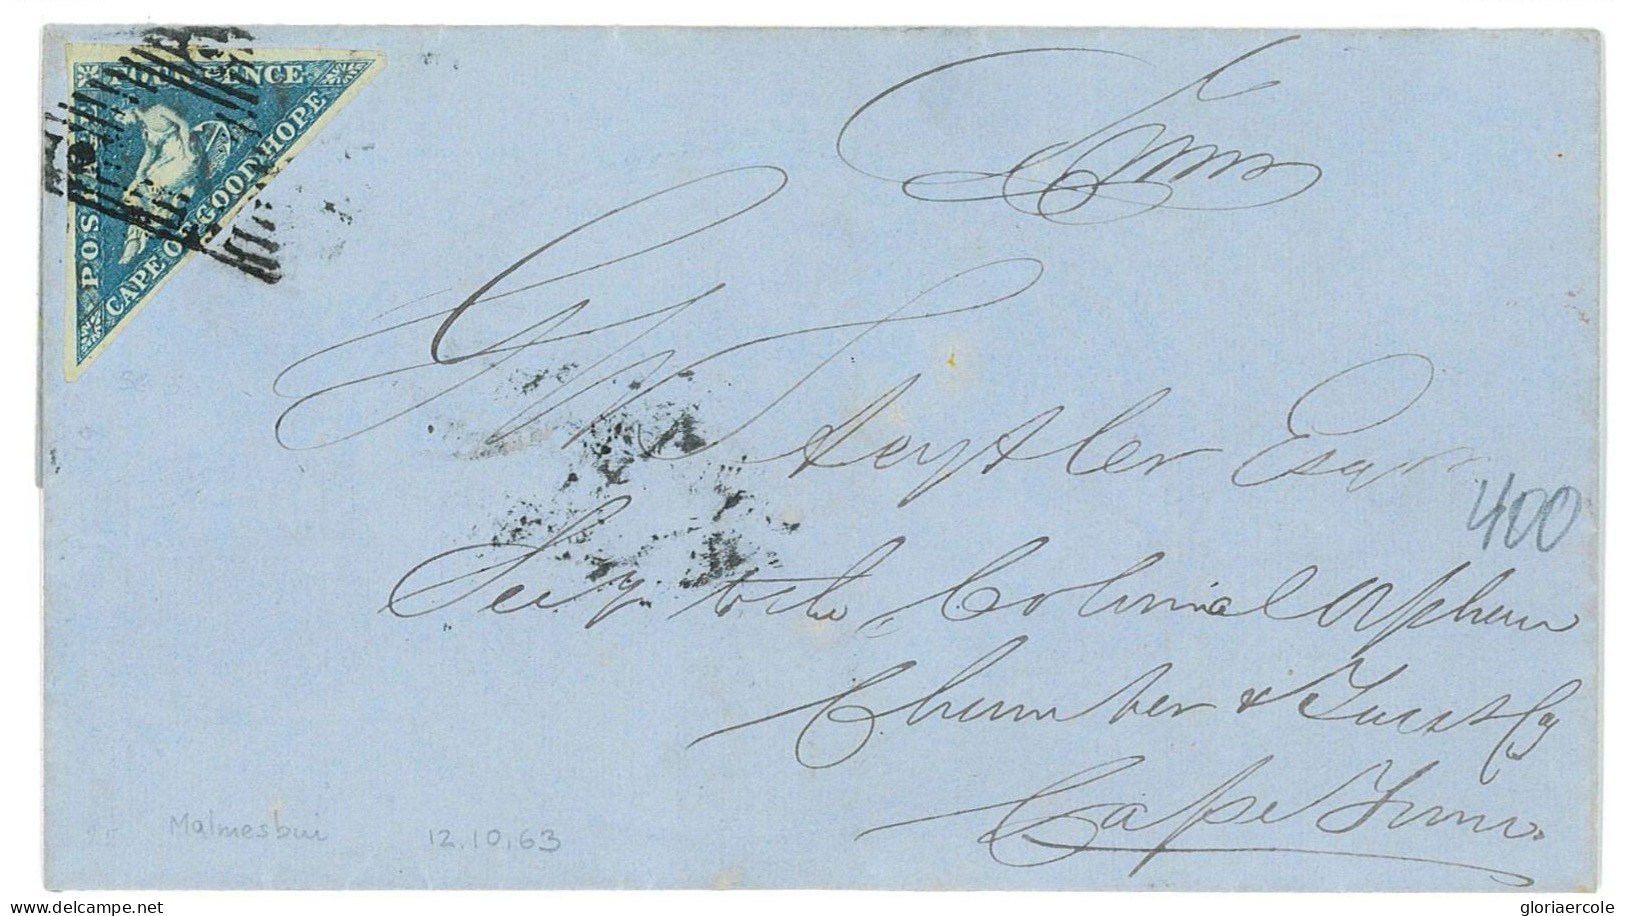 FOUR PENCE
POSTAGE
CAPE OF GOOD HOPE
Steytler Esqr
Secy to the Colonial Orphan
Chamber & Trust Cy
Cape Town.
400
Malmesbui 12.10.63
delcampe.net
gloriaercole